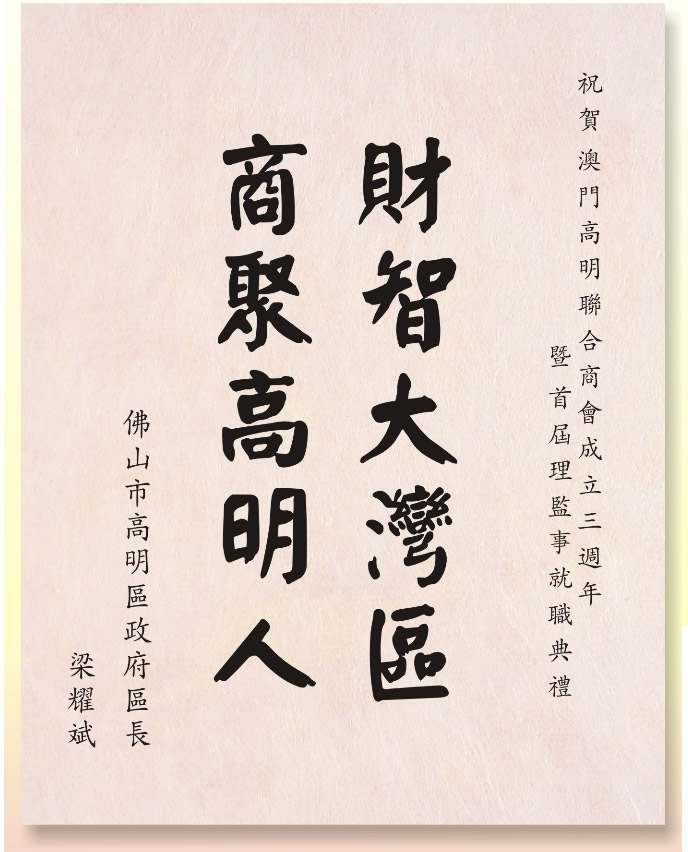 祝賀澳門高明聯合商會成立三週年
暨首屆理監事就職典禮
財智大灣區
商聚高明人
佛山市高明區政府區長
梁耀斌